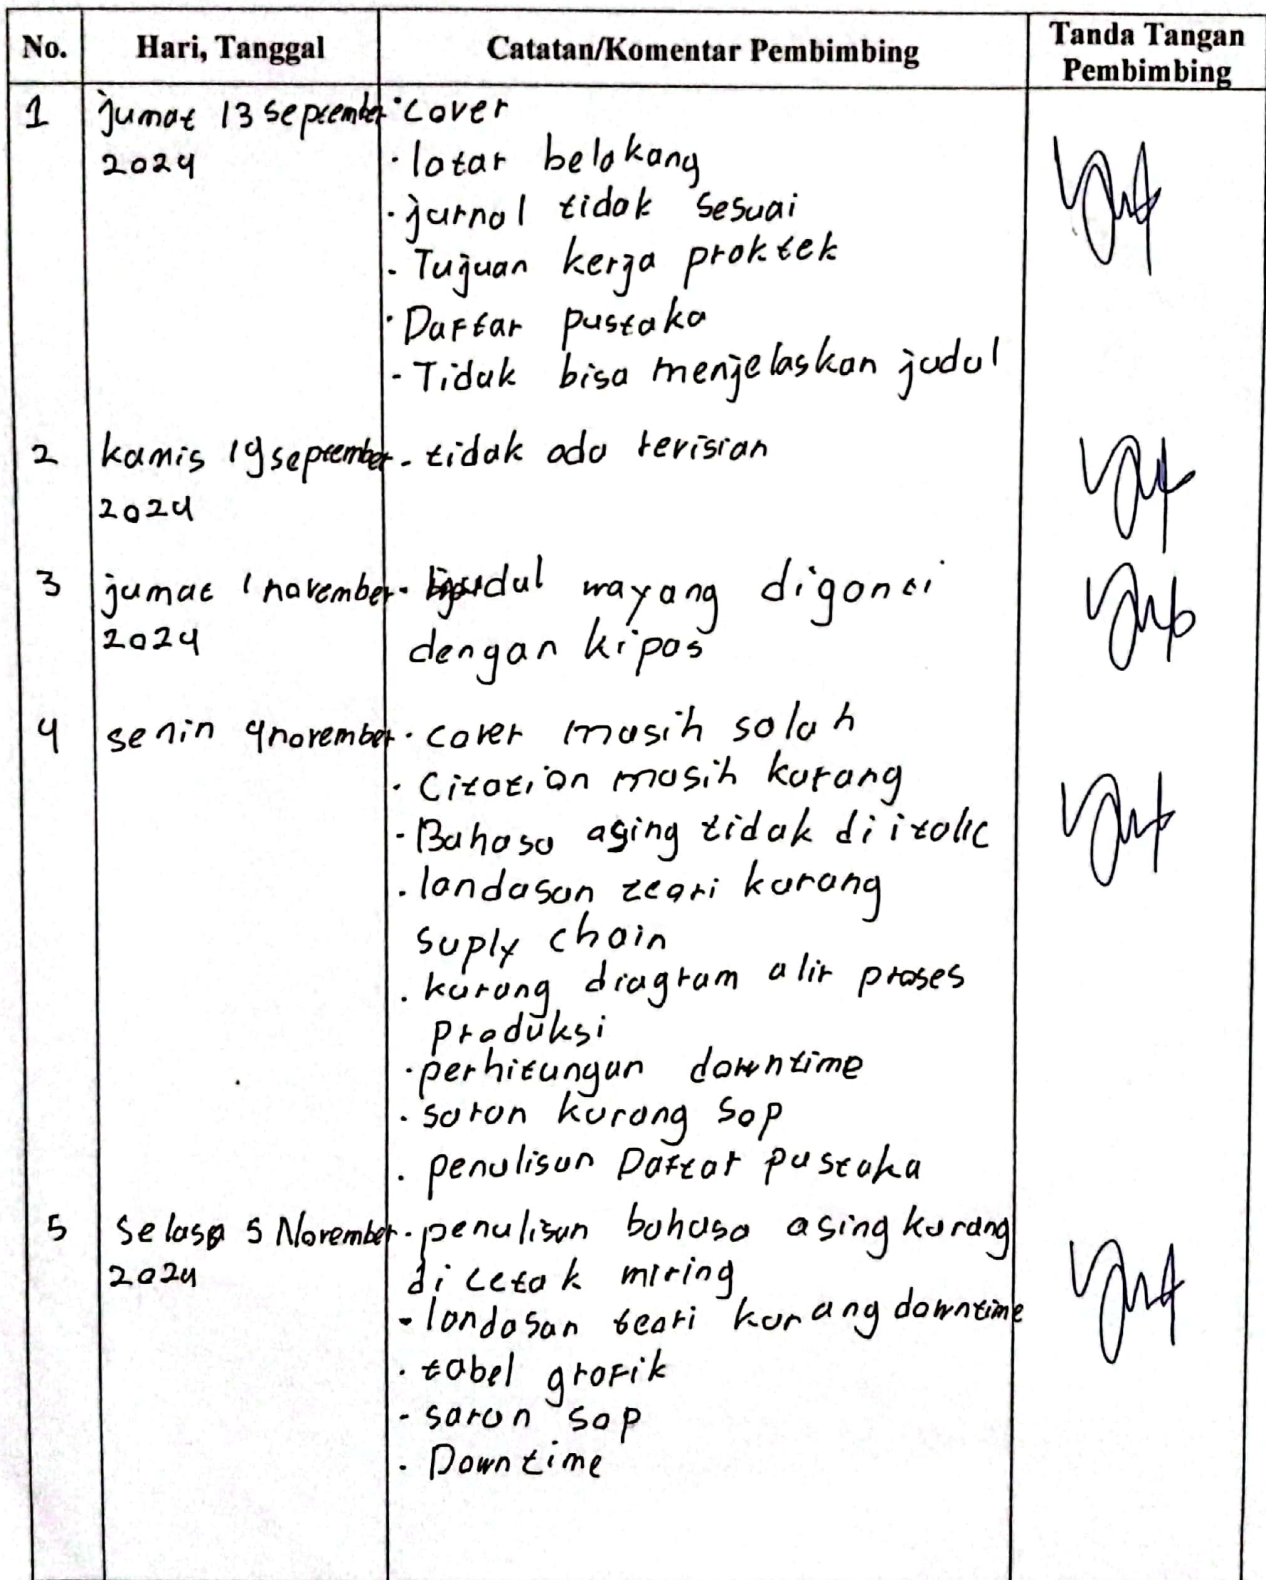 No. Hari, Tanggal Catatan/Komentar Pembimbing Tanda Tangan Pembimbing
1 jumat 13 september · cover
2024 · latar belakang
· jurnal tidak sesuai
- Tujuan kerja praktek
· Daftar pustaka
- Tidak bisa menjelaskan judul
2 kamis 19 september - tidak ada revisian
2024
3 jumat 1 november - judul wayang diganti
2024 dengan kipas
4 senin 4 november · cover masih salah
· Citation masih kurang
- Bahasa asing tidak di italic
· landasan teori kurang
suply chain
· kurang diagram alir proses
produksi
· perhitungan downtime
· saran kurang sop
· penulisan Daftar pustaka
5 Selasa 5 November · penulisan bahasa asing kurang
2024 di cetak miring
- landasan teori kurang downtime
· tabel grafik
- saran sop
· Downtime